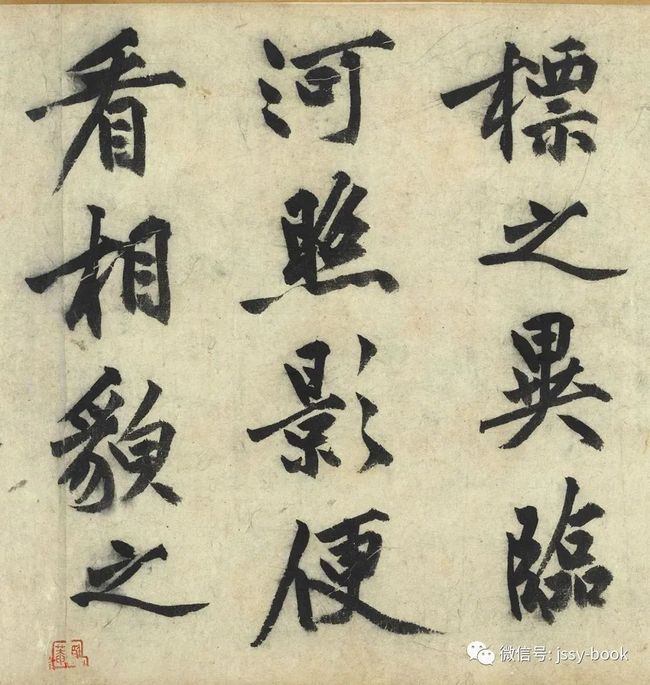 標之異臨
河照影便
看相貌之
微信号: jssy-book